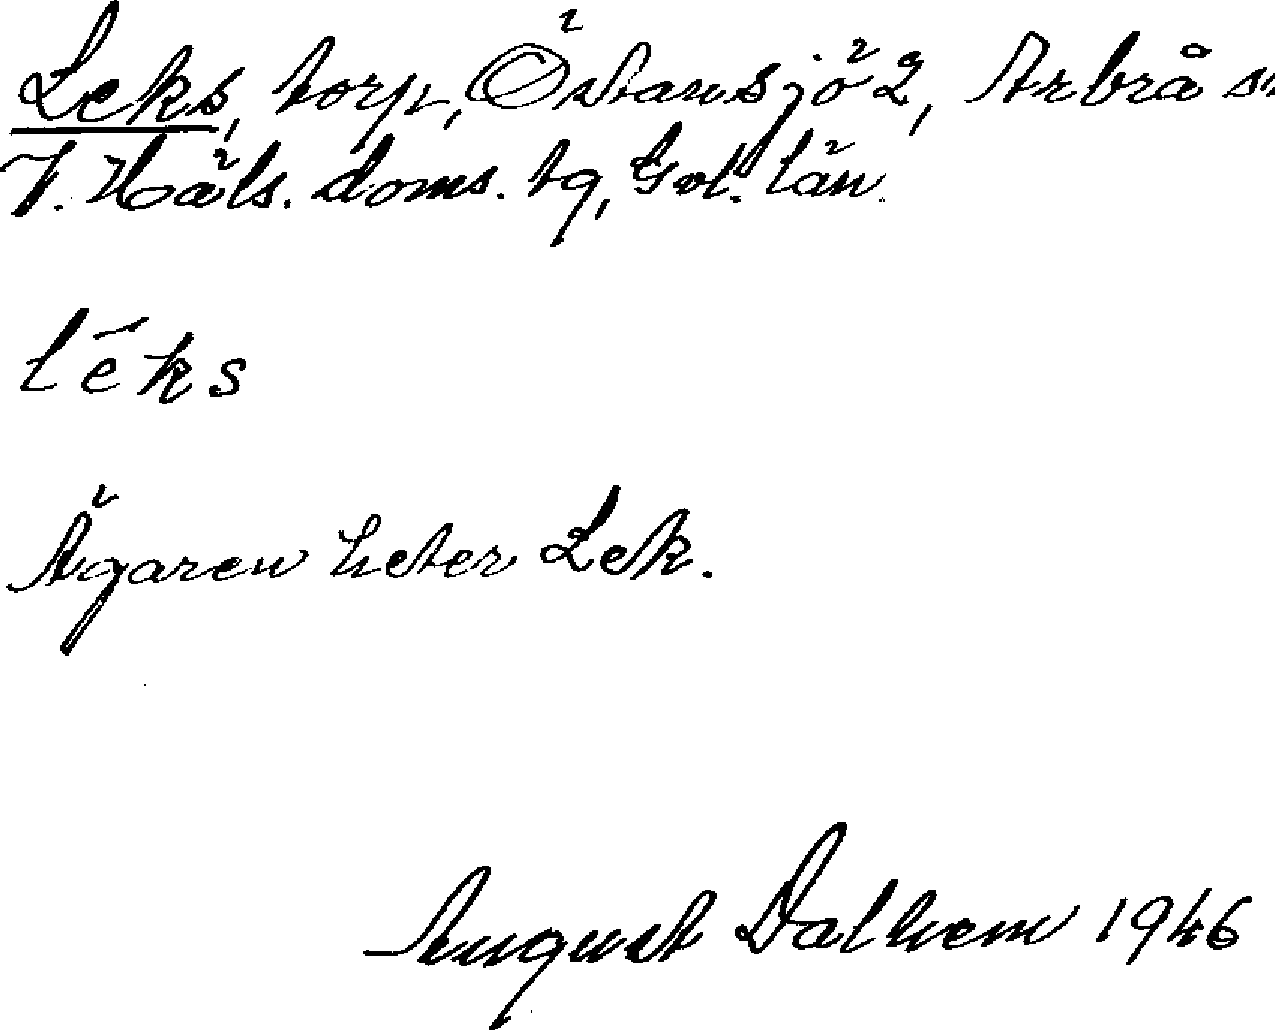 Leks, torp, Östansjö 2, Arbrå sn
V. Häls. doms. tg, Gvl. län.
lēks
Ägaren heter Lek.
August Dalhem 1946